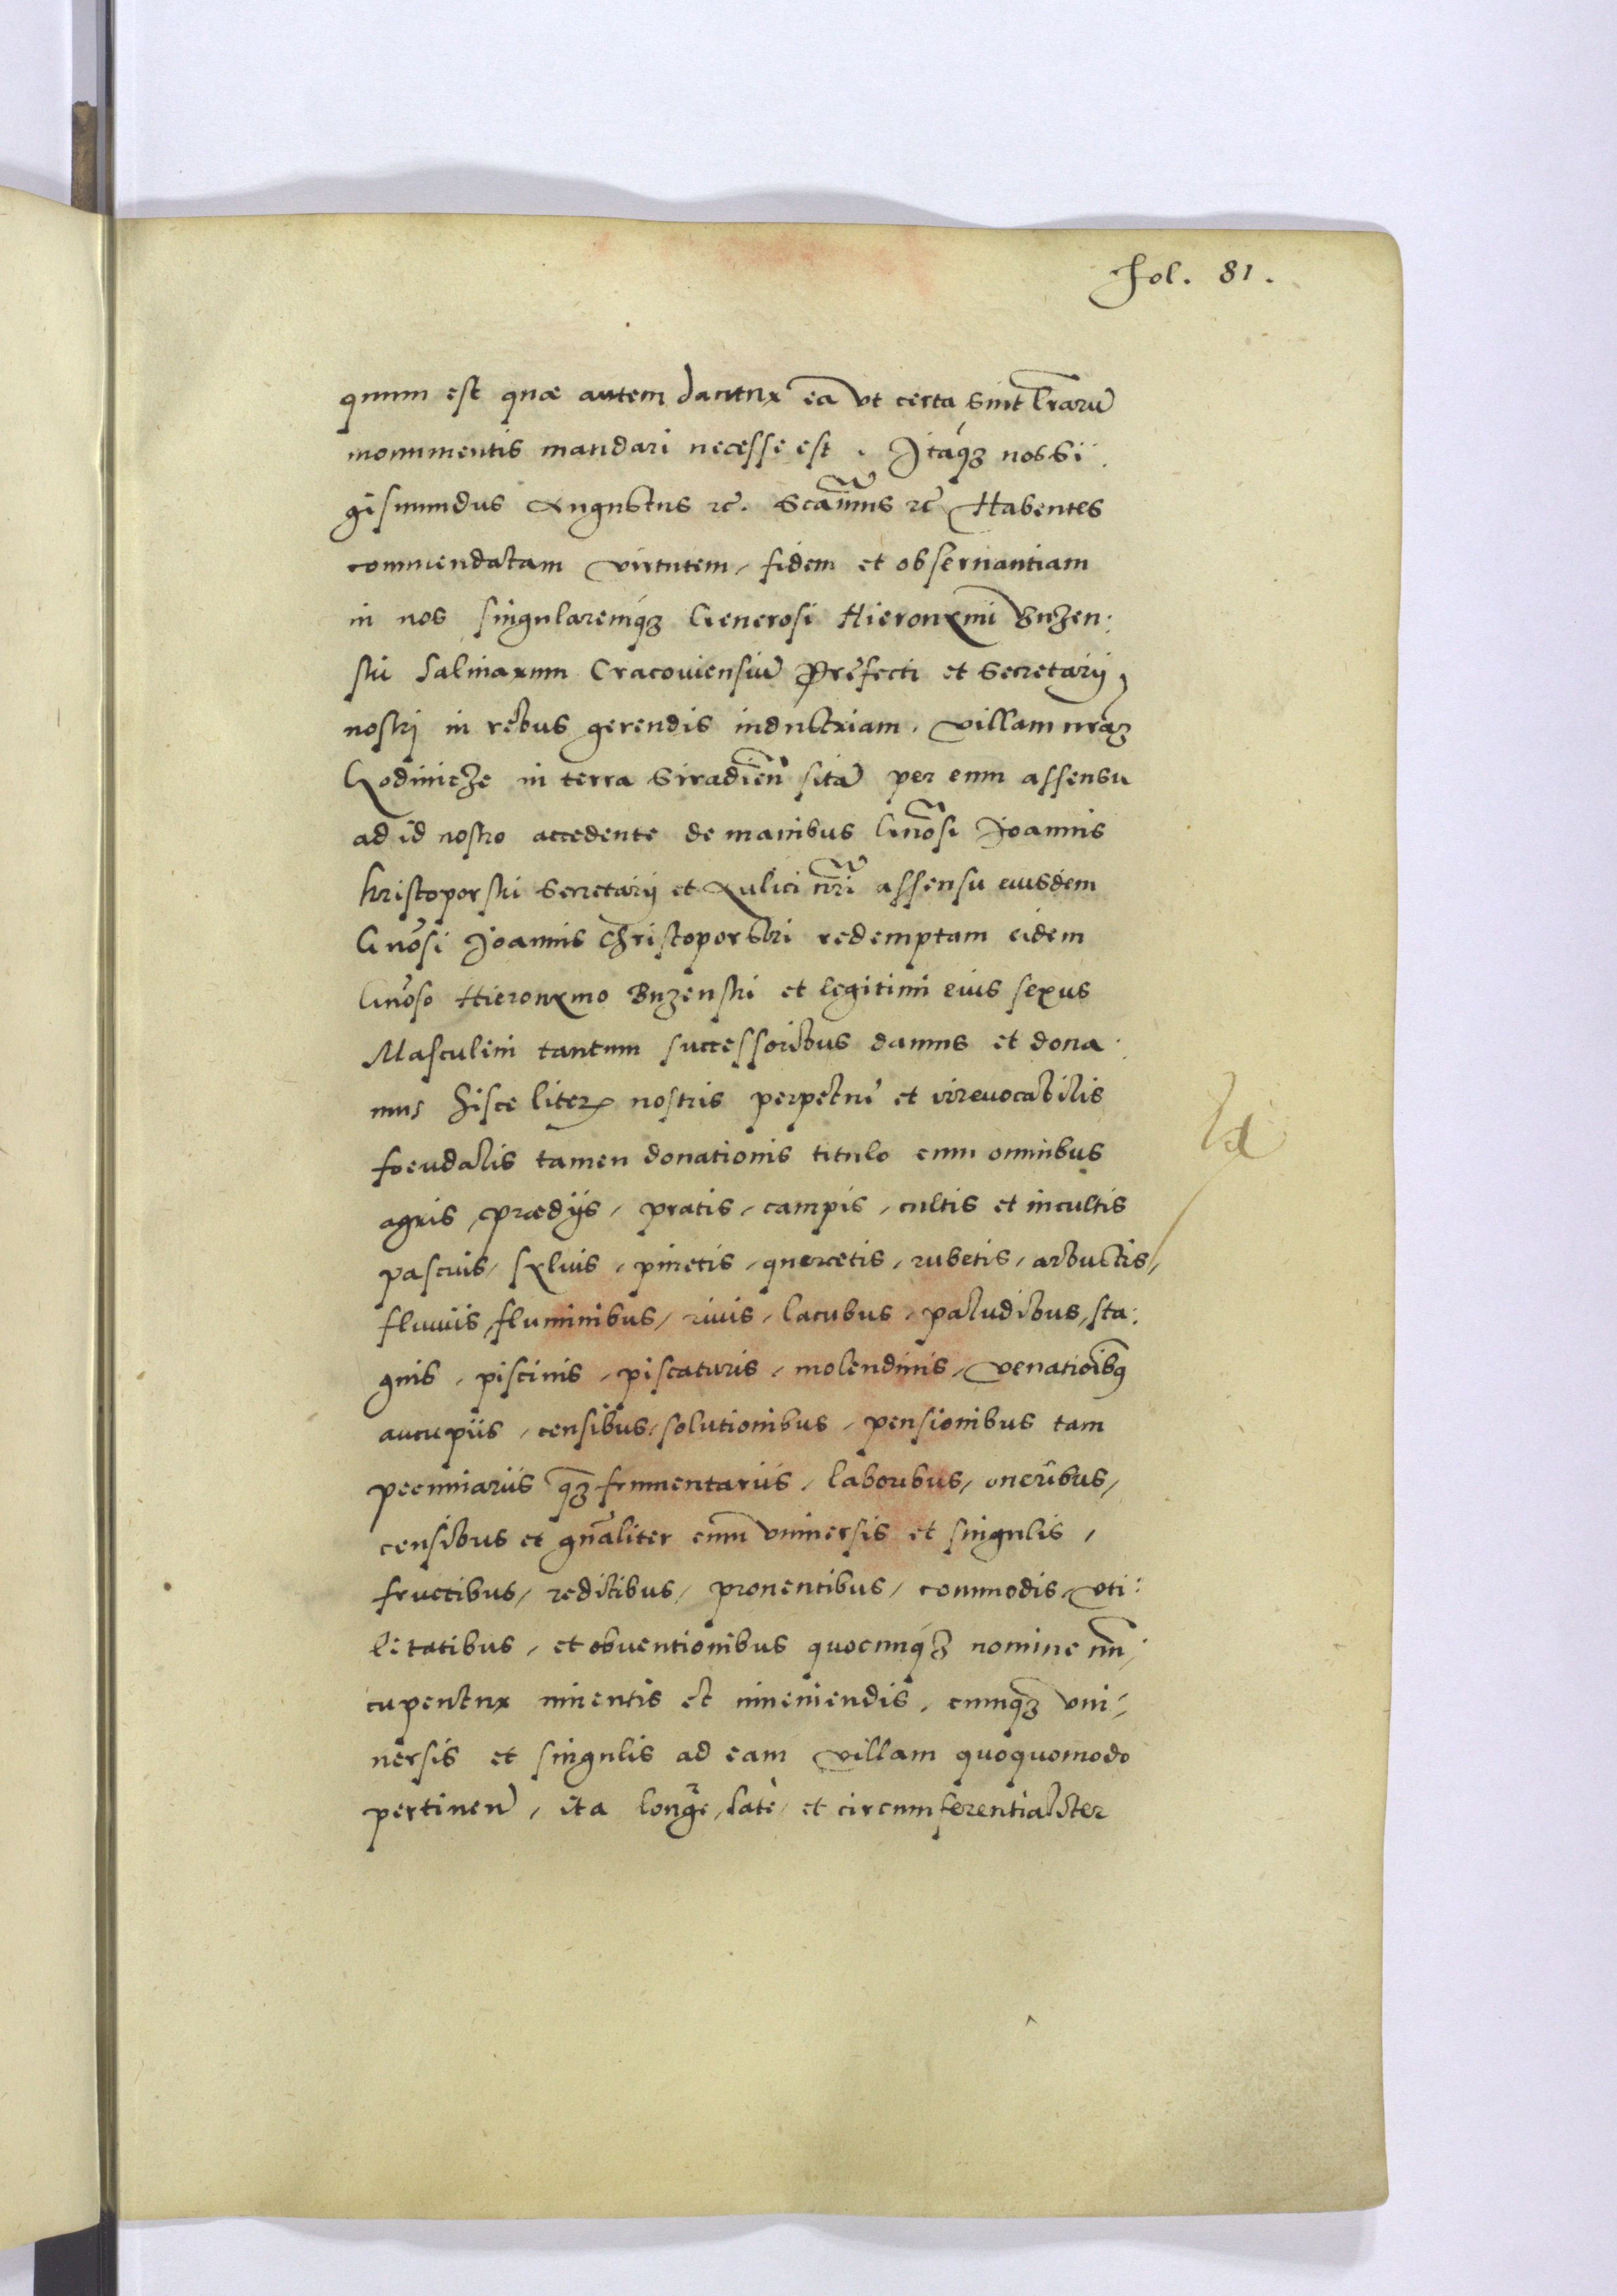 Fol. 81.
quum est quæ autem dantur ea vt certa sint lrarũ
monumentis mandari necesse est. Itaq́ꝫ nos Si
gismundus Augustus ꝛc̃. Scãimus ꝛc̃ Habentes
commendatam virtutem, fidem et obseruantiam
in nos singularemq́ꝫ Generosi Hieronymi Buzen:
ski Salinarum Cracouiensiũ Præfecti et Secretarij
nostri in rebus gerendis industriam. villam nrãꝫ
in terra Siradien̄ sitã per eum assensu
ad id nostro accedente de manibus Gnõsi Joannis
kristoporski Secretarij et Aulici nr̃i assensu eiusdem
Gnõsi Joannis Christoporski redemptam eidem
Gnõso Hieronymo Buzenski et legitimi eius sexus
Masculini tantum successoribus damus et dona
mus hisce literꝭ nostris perpetui et irreuocabilis
foeudalis tamen donationis titulo cum omnibus
agris, prædijs, pratis, campis, cultis et incultis
pascuis, syluis, pinetis, quercetis, rubetis, arbustis,
fluuiis, fluminibus, riuis, lacubus, paludibus, sta:
gnis, piscinis, piscaturis, molendinis, venatioibꝯ
aucupiis, censibus, solutionibus, pensionibus tam
pecuniariis qꝫ frumentariis, laboribus, oneribus,
censibus et gñaliter cum vniuersis et singulis,
fructibus, reditibus, prouentibus, commodis, vti:
litatibus, et obuentionibus quocunq́ꝫ nomine nũ:
cupentur inuentis et inueniendis, cumqꝫ vni:
uersis et singulis ad eam villam quoquomodo
pertinen̄, ita longe, latè, et circumferentialiter